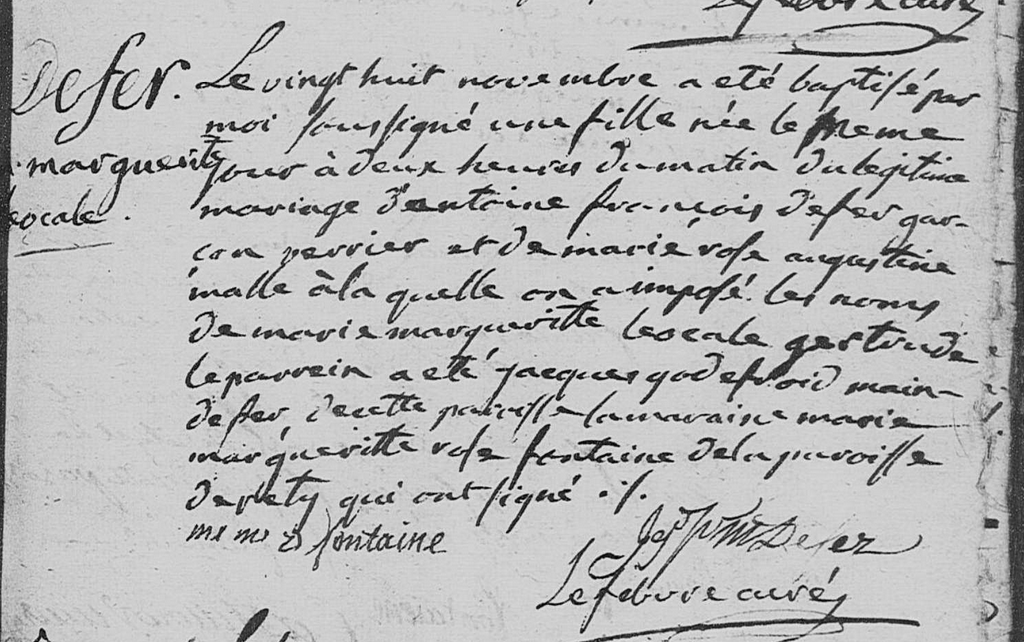 Lefebvre curé
Defer. Le vingt huit novembre a eté baptisé par
moi soussigné une fille née le meme
marguerite jour à deux heures du matin du legitime
leocale. mariage d'entoine françois defer gar-
con perrier et de marié rose augustine
malle à la quelle on a imposé les noms
de marie margueritte leocale gertrude
le parrein a eté jacques godefroid main-
defer, de cette paroisse la maraine marie
marguéritte rose fontaine de la paroisse
de rety qui ont signé ./.
m m r fontaine
Defer
Lefebvre curé